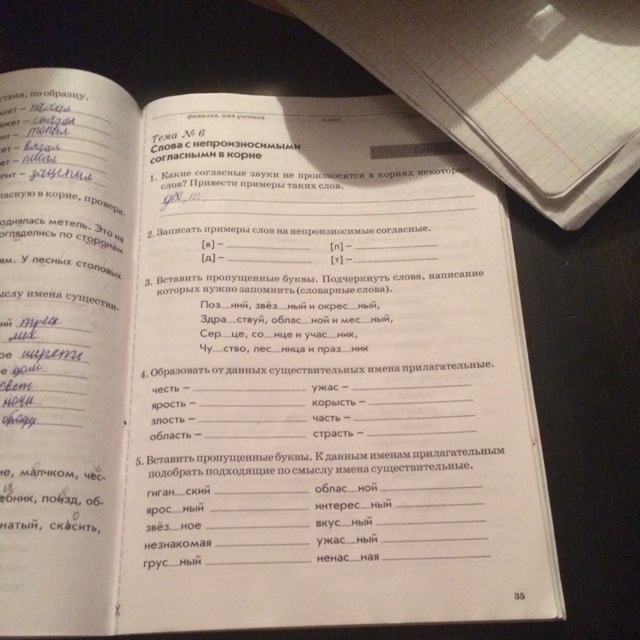 ствия, по образцу.
сказал
гнал
ласную в корне, проверя.
однялась метель. Это на
огляделись по сторонам
ям. У лесных столовых
ыслу имена существи.
ночи
не, малчком, чес-
ебник, поизд, об-
натый, скасить,
фамилия, имя ученика
класс
Тема № 6
Слова с непроизносимыми
согласными в корне
1. Какие согласные звуки не произносятся в корнях некоторых
слов? Привести примеры таких слов.
2. Записать примеры слов на непроизносимые согласные.
[в] – [л] –
[д] – [т] –
3. Вставить пропущенные буквы. Подчеркнуть слова, написание
которых нужно запомнить (словарные слова).
Поз__ний, звёз__ный и окрес__ный,
Здра__ствуй, облас__ной и мес__ный,
Сер__це, со__нце и учас__ник,
Чу__ство, лес__ница и праз__ник
4. Образовать от данных существительных имена прилагательные.
честь – ужас –
ярость – корысть –
злость – часть –
область – страсть –
5. Вставить пропущенные буквы. К данным именам прилагательным
подобрать подходящие по смыслу имена существительные.
гиган__ский облас__ной
ярос__ный интерес__ный
звёз__ное вкус__ный
незнакомая ужас__ный
грус__ный ненас__ная
35